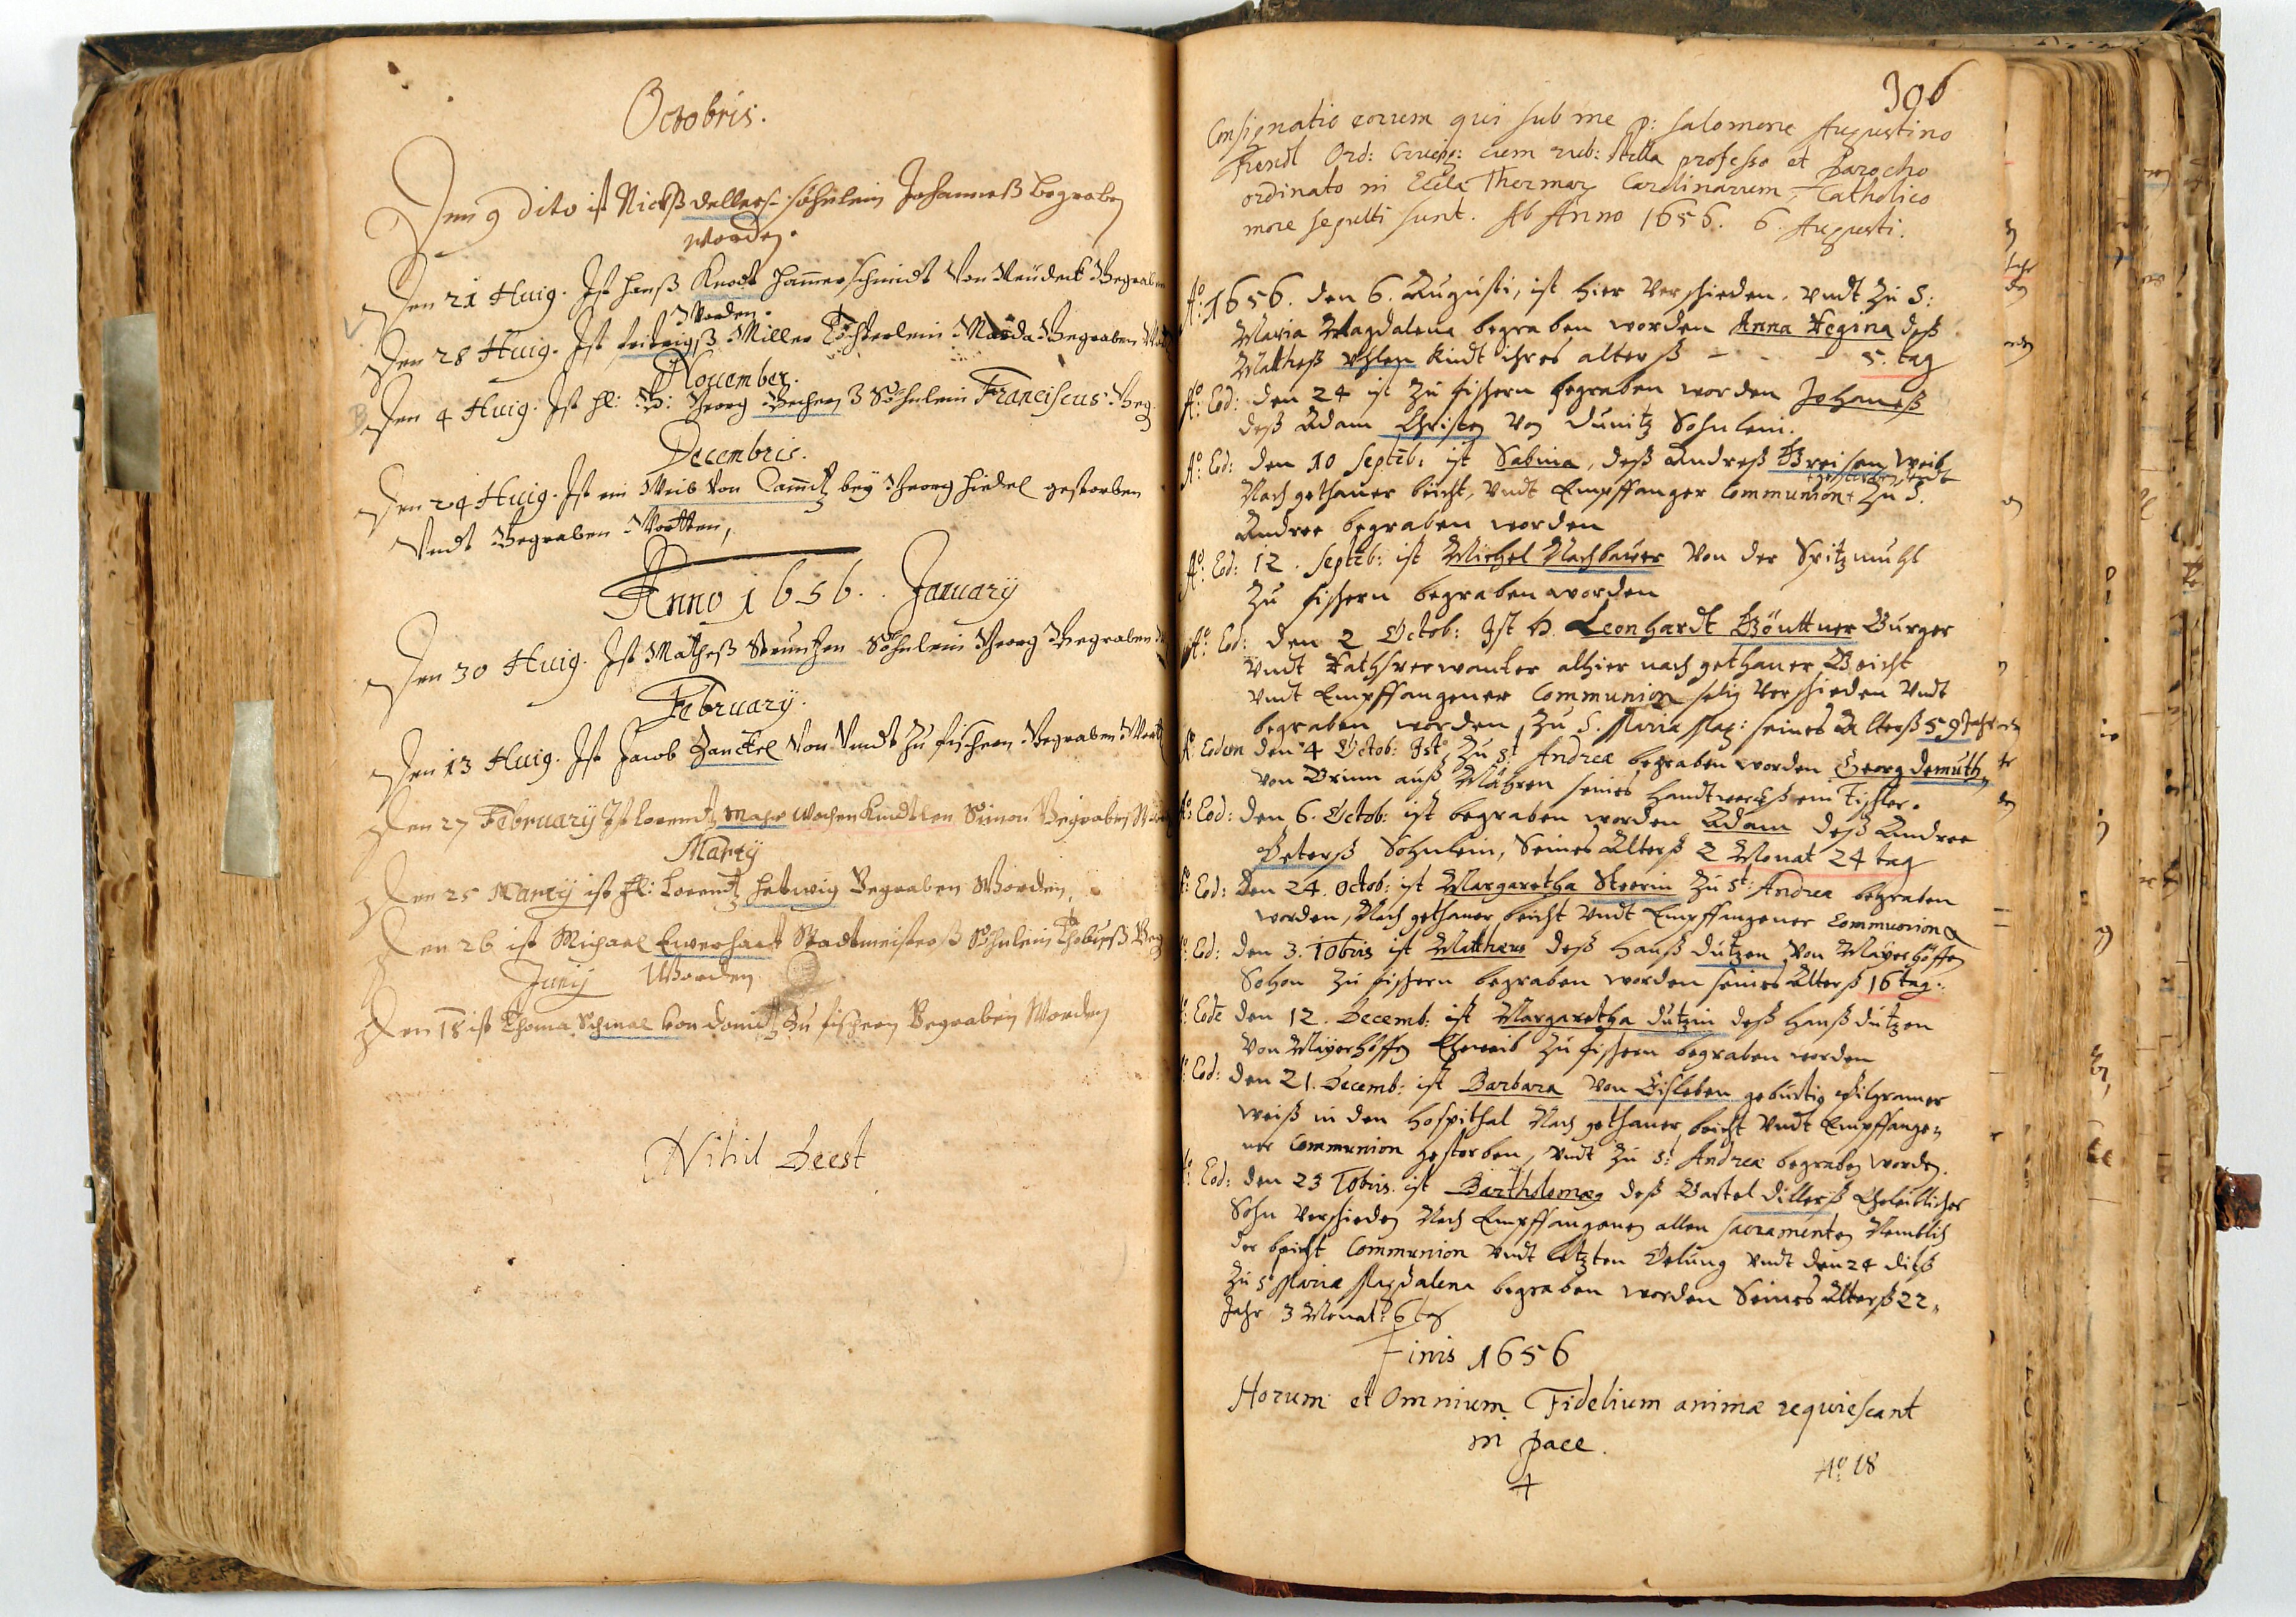 Octobris.
Den 9 dito ist Nickß dellers söhnlein Johanneß begraben
worden.
Den 21 Huig. Ist Hanß Knodt Hammerschmidt Von Neudeck Begraben
Worden.
Den 28 Huig. Ist Miller Töchterlein Begraben
November.
Den 4 Huig. Ist Hl: B: Georg Becher 3 Söhnlein Franciscus Beg
Decembris.
Den 24 Huig. Ist ein Weib Von bey Georg Hickel gestorben
Vndt Begraben Wortten,
Anno 1656. January
Den 30 Huig. Ist Matheß Söhnlein Georg Begraben
February.
Den 13 Huig. Ist Jacob Zanckel Von Vndt Zu fischern Begraben
Den 27 February Ist Lorentz Mahr wochen Kindtlen Simon Begraben
Marty
Den 25 Marty ist Hl: Lorentz Hettwig Begraben Worden,
Den 26 ist Michael Ewerhart Stadtmeisterß Söhnlein Beg
Juny Worden
Den 18 ist Thoma Schmal Von Zu fischern Begraben Worden
Nihil Deest
306
Consignatio eorum qui sub me P: Salomone Augustino
Frendl Ord: Crucig: cum rub: stella professo et Parocho
ordinato in Eccla Thermar. Carolinarum, Catholico
more sepulti sunt. Ab Anno 1656. 6. Augusti.
Ao: 1656. den 6. Augusti, ist hier Verschieden, Vndt zu S:
Maria Magdalena begraben worden Anna Regina deß
Mattheß Kindt ihres alterß - - - 5. tag
Ao: Eod: den 24 ist zu fischern begraben worden Johaneß
deß Adam Christen Von Dunitz Sohnlein.
Ao: Eod: den 10 Septeb: ist Sabina, deß Andreß Weib
Nach gethaner beicht, Vndt Empffanger Communion + Zu S.
Andree begraben worden
Ao: Eod: 12. Septeb: ist Michel Nachbauer Von der Spitzmühl
Zu fischern begraben worden
Ao: Eod: den 2 Octob: Ist H. Leonhardt Böuttner Burger
Vndt Rathsverwanter alhier nach gethaner Beicht
Vndt Empffangener Communion selig Verschieden Vndt
begraben worden, Zu S. Maria Mag: seines Alterß 59 Jahr
Ao: Eodem den 4 Octob: Ist Zu St: Andrea begraben worden Georg demuth,
Von Brünn auß Mähren seines Handtwerckß ein Tischler.
Ao: Eod: den 6. Octob: ist begraben worden Adam deß Andree
Peterß Sohnlein, Seines Alterß 2 Monat 24 tag
Ao: Eod: Den 24. Octob: ist Margaretha Steerin Zu St: Andrea begraben
worden, Nach gethaner beicht Vndt Empffangener Communion
Ao: Eod: den 3. 10bris ist Matthæus deß Hanß dutzen Von Mayerhöffen
Sohn Zu fischern begraben worden seines Alterß 16 tag.
Ao: Eode den 12. Decemb: ist Margaretha dutzin deß Hanß dutzen
Von Mayerhöffen Eheweib Zu fischern begraben worden
Ao: Eod: den 21. Decemb: ist Barbara Von Eisleben gebürtig Pilgramer
weiß in den Hospithal Nach gethaner beicht Vndt Empffange=
ner Communion gestorben, Vndt Zu S: Andrea begraben worden.
Ao: Eod: den 23 10bris. ist Bartholomæy deß Bastel dillerß Eheleiblicher
Sohn Verschieden Nach Empffangenen allen sacramenten Nemblich
der beicht Communion Vndt letzten Oelung Vndt den 24 diß
Zu S. Mariæ Magdalena begraben worden Seines Alterß 22
Jahr 3 Monat 6 tag
Finis 1656
Horum et Omnium Fidelium animæ requiescant
in pace.
No: 18